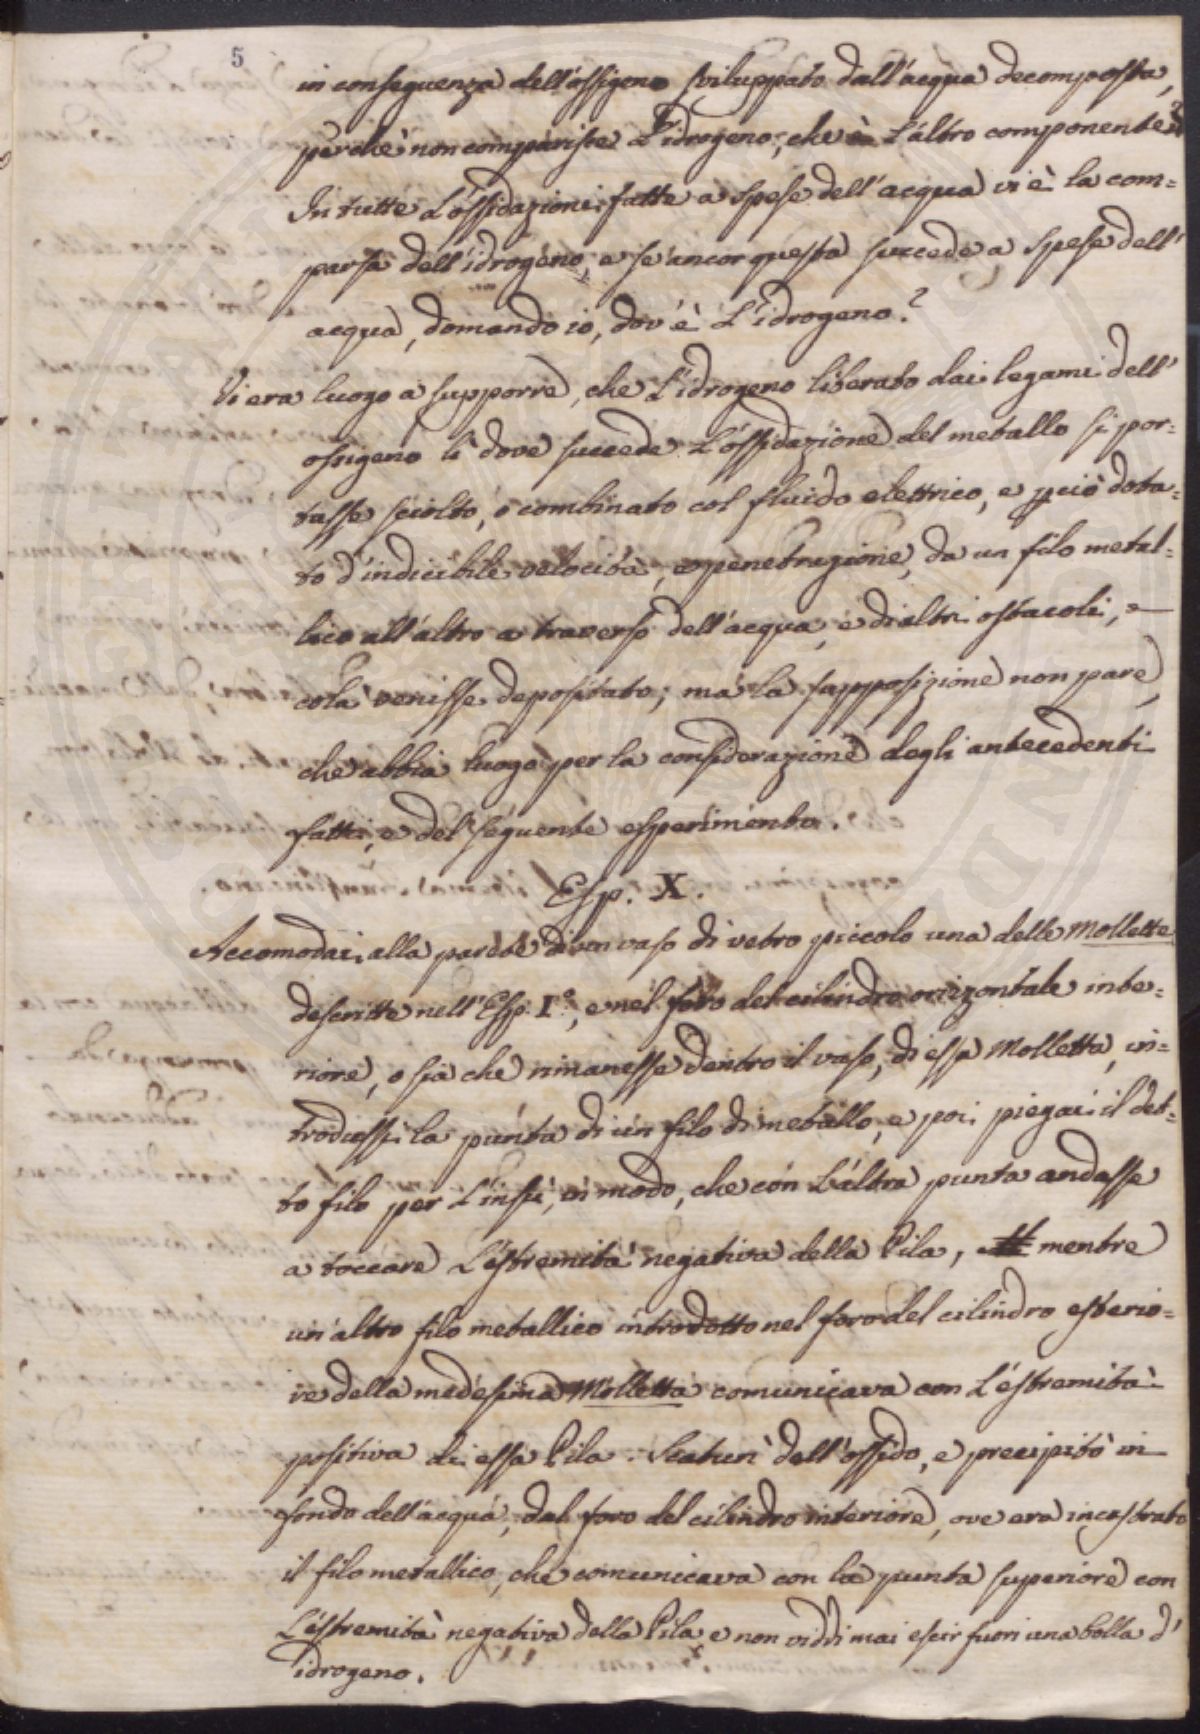 5
in conseguenza dell'ossigeno sviluppato dall'acqua decomposta,
perchè non comparisce l'idrogeno, che è l'altro componente?
In tutte l'ossidazioni fatte a spese dell'acqua vi è la com=
parsa dell'idrogeno, e se ancor questa succede a spese dell'
acqua, domando io, dov'è l'idrogeno?
Vi era luogo a supporre, che l'idrogeno liberato dai legami dell'
ossigeno lì dove succede l'ossidazione del metallo si por=
tasse sciolto, o combinato col fluido elettrico, e pciò dota=
to d'indicibile velocità, e penetrazione, da un filo metal=
lico all'altro a traverso dell'acqua, e di altri ostacoli, e
colà venisse depositato; ma la supposizione non pare,
che abbia luogo per la considerazione degli antecedenti
fatti, e del seguente esperimento.
Esp. X.
Accomodai alla parete di un vaso di vetro piccolo una delle Mollette
descritte nell'Esp. I°, e nel foro del cilindro orizontale inte=
riore, o sia che rimanesse dentro il vaso, di essa Molletta, in=
trodussi la punta di un filo di metallo, e poi piegai il det=
to filo per l'insù, in modo, che con l'altra punta andasse
a toccare l'estremità negativa della Pila, mentre
un'altro filo metallico introdotto nel foro del cilindro esterio=
re della medesima Molletta comunicava con l'estremità
positiva di essa Pila. Scaturì dell'ossido, e precipitò in
fondo dell'acqua, dal foro del cilindro interiore, ove era incastrato
il filo metallico, che comunicava con la punta superiore con
l'estremità negativa della Pila, e non viddi mai escir fuori una bolla d'
idrogeno.